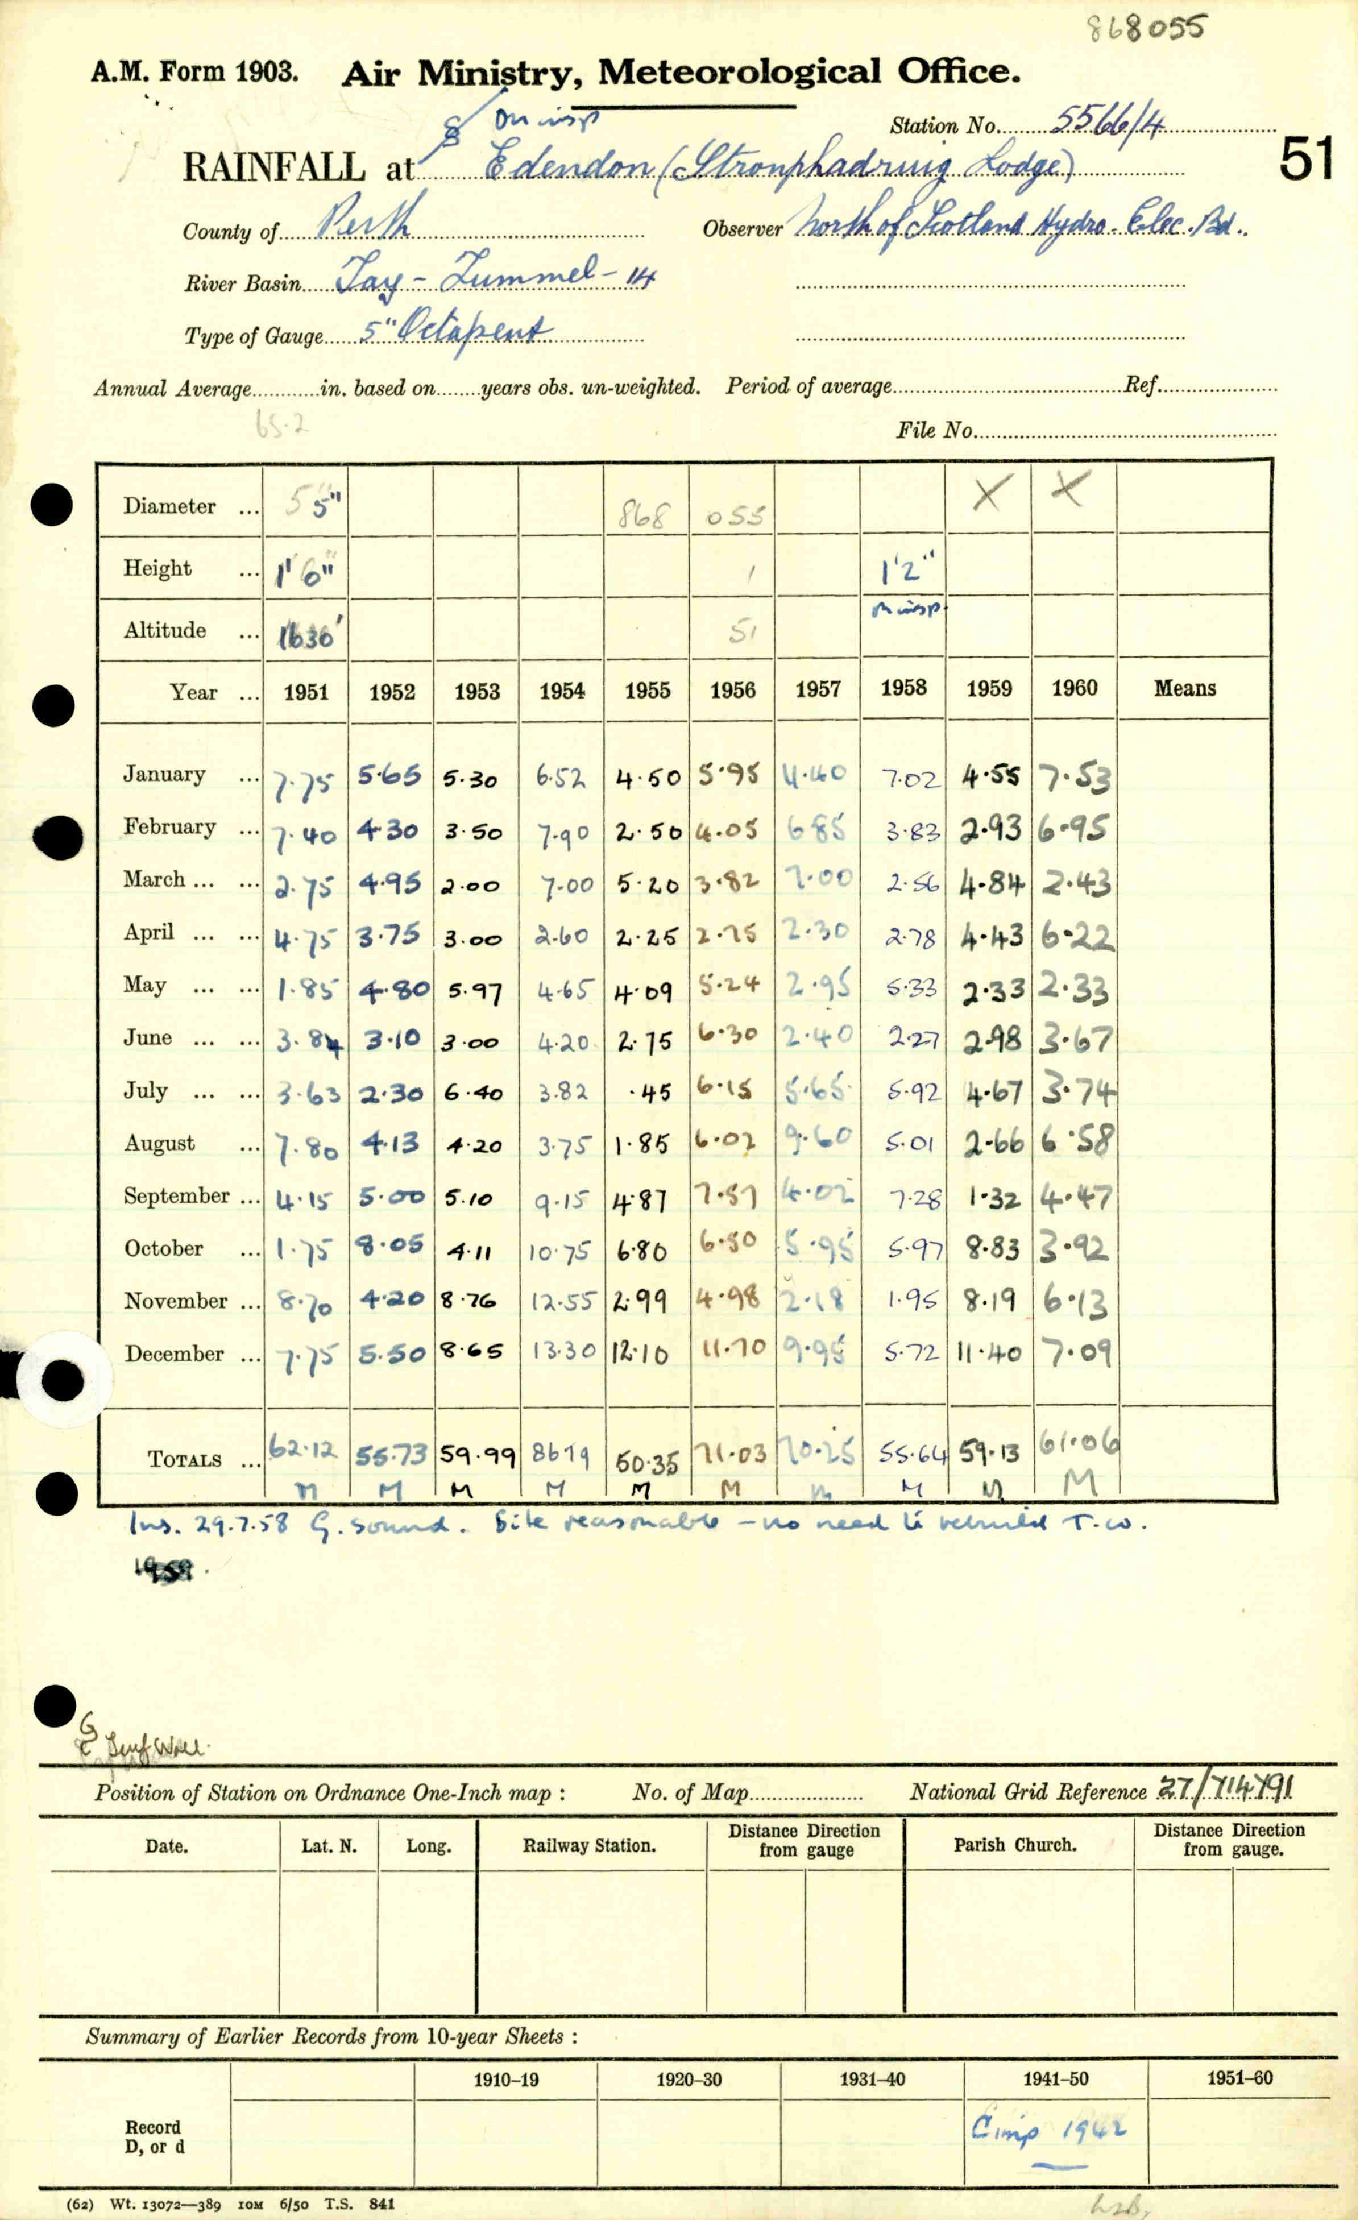 868055
A.M. Form 1903. Air Ministry, Meteorological Office.
On insp
Station No. 5566/4
RAINFALL at Edendon (Stronphadruig Lodge)
51
County of Perth Observer North of Scotland Hydro. Elec. Bd.
River Basin Tay - Tummel - 14
Type of Gauge 5" Octapent
Annual Average in. based on years obs. un-weighted. Period of average Ref.
65.2
File No.
Diameter ... 5" 5" 868 055 X X
Height ... 1'6" 1 1'2"
on insp.
Altitude ... 1630' 51
Year ... 1951 1952 1953 1954 1955 1956 1957 1958 1959 1960 Means
January ... 7.75 5.65 5.30 6.52 4.50 5.95 4.40 7.02 4.55 7.53
February ... 7.40 4.30 3.50 7.90 2.50 4.05 6.85 3.83 2.93 6.95
March ... ... 2.75 4.95 2.00 7.00 5.20 3.82 7.00 2.56 4.84 2.43
April ... ... 4.75 3.75 3.00 2.60 2.25 2.75 2.30 2.78 4.43 6.22
May ... ... 1.85 4.80 5.97 4.65 4.09 5.24 2.95 5.33 2.33 2.33
June ... ... 3.84 3.10 3.00 4.20 2.75 6.30 2.40 2.27 2.98 3.67
July ... ... 3.63 2.30 6.40 3.82 .45 6.15 5.65 5.92 4.67 3.74
August ... 7.80 4.13 4.20 3.75 1.85 6.02 9.60 5.01 2.66 6.58
September ... 4.15 5.00 5.10 9.15 4.87 7.57 4.02 7.28 1.32 4.47
October ... 1.75 8.05 4.11 10.75 6.80 6.50 5.95 5.97 8.83 3.92
November ... 8.70 4.20 8.76 12.55 2.99 4.98 2.18 1.95 8.19 6.13
December ... 7.75 5.50 8.65 13.30 12.10 11.70 9.95 5.72 11.40 7.09
TOTALS ... 62.12 55.73 59.99 86.19 50.35 71.03 70.25 55.64 59.13 61.06
M M M M M M M M M M
Ins. 29.7.58 G. sound. Site reasonable - no need to rebuild T.W.
1958.
G Turf Wall.
Position of Station on Ordnance One-Inch map : No. of Map National Grid Reference 27/714791
Date. Lat. N. Long. Railway Station. Distance Direction from gauge Parish Church. Distance Direction from gauge.
Summary of Earlier Records from 10-year Sheets :
1910–19 1920–30 1931–40 1941–50 1951–60
Record
D, or d
C imp 1942
(62) Wt. 13072—389 10M 6/50 T.S. 841